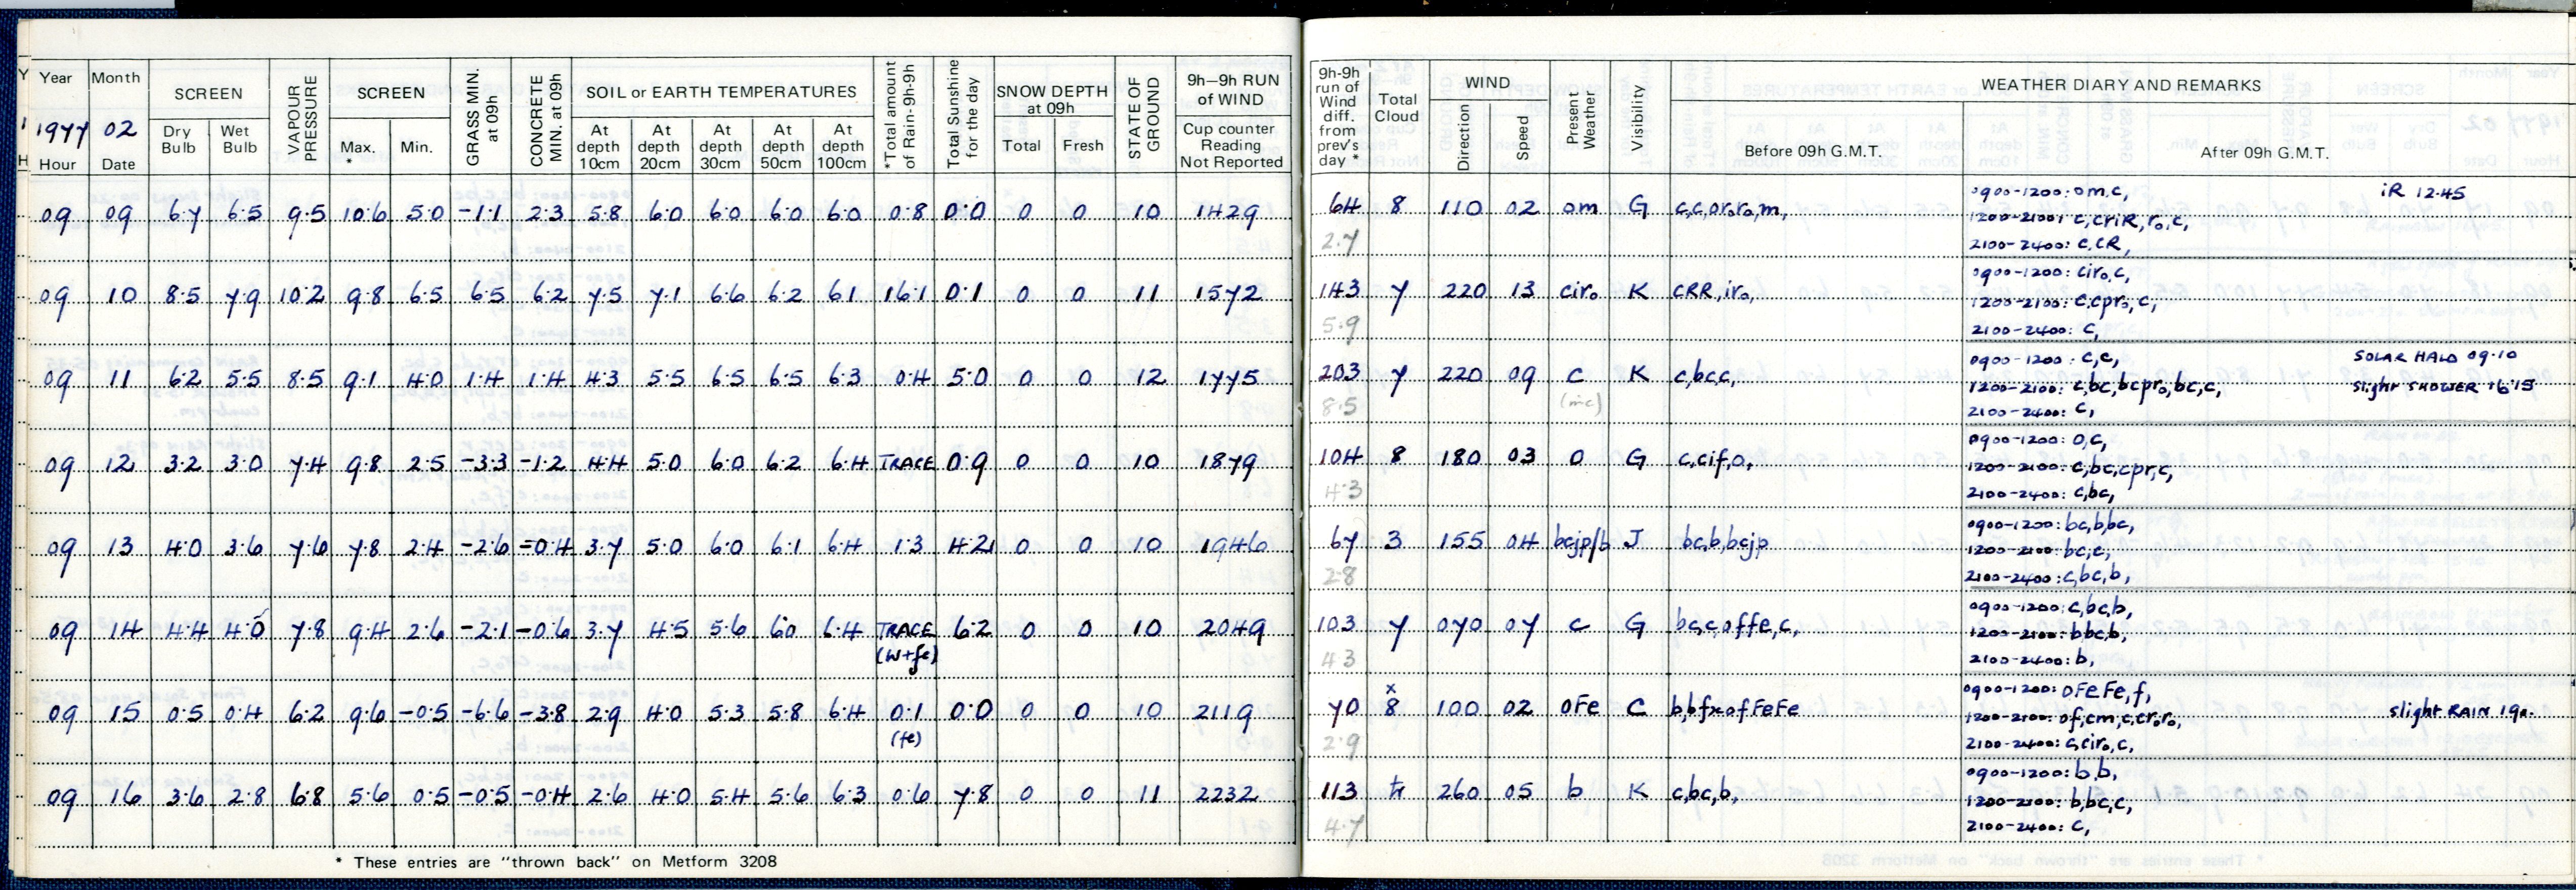 Year Month SCREEN VAPOUR PRESSURE SCREEN GRASS MIN. at 09h CONCRETE MIN. at 09h SOIL or EARTH TEMPERATURES *Total amount of Rain-9h-9h Total Sunshine for the day SNOW DEPTH at 09h STATE OF GROUND 9h–9h RUN of WIND
1977 02 Dry Bulb Wet Bulb Max. * Min. At depth 10cm At depth 20cm At depth 30cm At depth 50cm At depth 100cm Total Fresh Cup counter Reading Not Reported
Hour Date
09 09 6.7 6.5 9.5 10.6 5.0 -1.1 2.3 5.8 6.0 6.0 6.0 6.0 0.8 0.0 0 0 10 1429
09 10 8.5 7.9 10.2 9.8 6.5 6.5 6.2 7.5 7.1 6.6 6.2 6.1 16.1 0.1 0 0 11 1572
09 11 6.2 5.5 8.5 9.1 4.0 1.4 1.4 4.3 5.5 6.5 6.5 6.3 0.4 5.0 0 0 12 1775
09 12 3.2 3.0 7.4 9.8 2.5 -3.3 -1.2 4.4 5.0 6.0 6.2 6.4 TRACE 0.9 0 0 10 1879
09 13 4.0 3.6 7.6 7.8 2.4 -2.6 -0.4 3.7 5.0 6.0 6.1 6.4 1.3 4.2 0 0 10 1946
09 14 4.4 4.0 7.8 9.4 2.6 -2.1 -0.6 3.7 4.5 5.6 6.0 6.4 TRACE 6.2 0 0 10 2049
(w+fe)
09 15 0.5 0.4 6.2 9.6 -0.5 -6.6 -3.8 2.9 4.0 5.3 5.8 6.4 0.1 0.0 0 0 10 2119
(fe)
09 16 3.6 2.8 6.8 5.6 0.5 -0.5 -0.4 2.6 4.0 5.4 5.6 6.3 0.6 7.8 0 0 11 2232
* These entries are "thrown back" on Metform 3208
9h-9h run of Wind diff. from prev's day * Total Cloud WIND Present Weather Visibility WEATHER DIARY AND REMARKS
Direction Speed Before 09h G.M.T. After 09h G.M.T.
0900-1200: om,c, iR 12.45
64 8 110 02 om G c,c,or,ro,m,
1200-2100: c,criR,ro,c,
2.7 2100-2400: c,cR,
0900-1200: ciro,c,
143 7 220 13 ciro K cRR,iro,
1200-2100: c,cpro,c,
5.9 2100-2400: c,
0900-1200: c,c, SOLAR HALO 09.10
203 7 220 09 c K c,bc,c,
1200-2100: c,bc,bcpro,bc,c, slight SHOWER 16.15
8.5 2100-2400: c,
0900-1200: o,c,
104 8 180 03 o G c,cif,o,
1200-2100: c,bc,cpr,c,
4.3 2100-2400: c,bc,
0900-1200: bc,b,bc,
67 3 155 04 bcjp/b J bc,b,bcjp
1200-2100: bc,c,
2.8 2100-2400: c,bc,b,
0900-1200: c,bc,b,
103 7 070 07 c G bc,c,offe,c,
1200-2100: b,bc,b,
4.3 2100-2400: b,
0900-1200: oFeFe,f,
70 x8 100 02 oFe C b,bfxofFeFe
1200-2100: of,cm,c,cr,ro, slight RAIN 19
2.9 2100-2400: c,ciro,c,
0900-1200: b,b,
113 260 05 b K c,bc,b,
1200-2100: b,bc,c,
4.7 2100-2400: c,